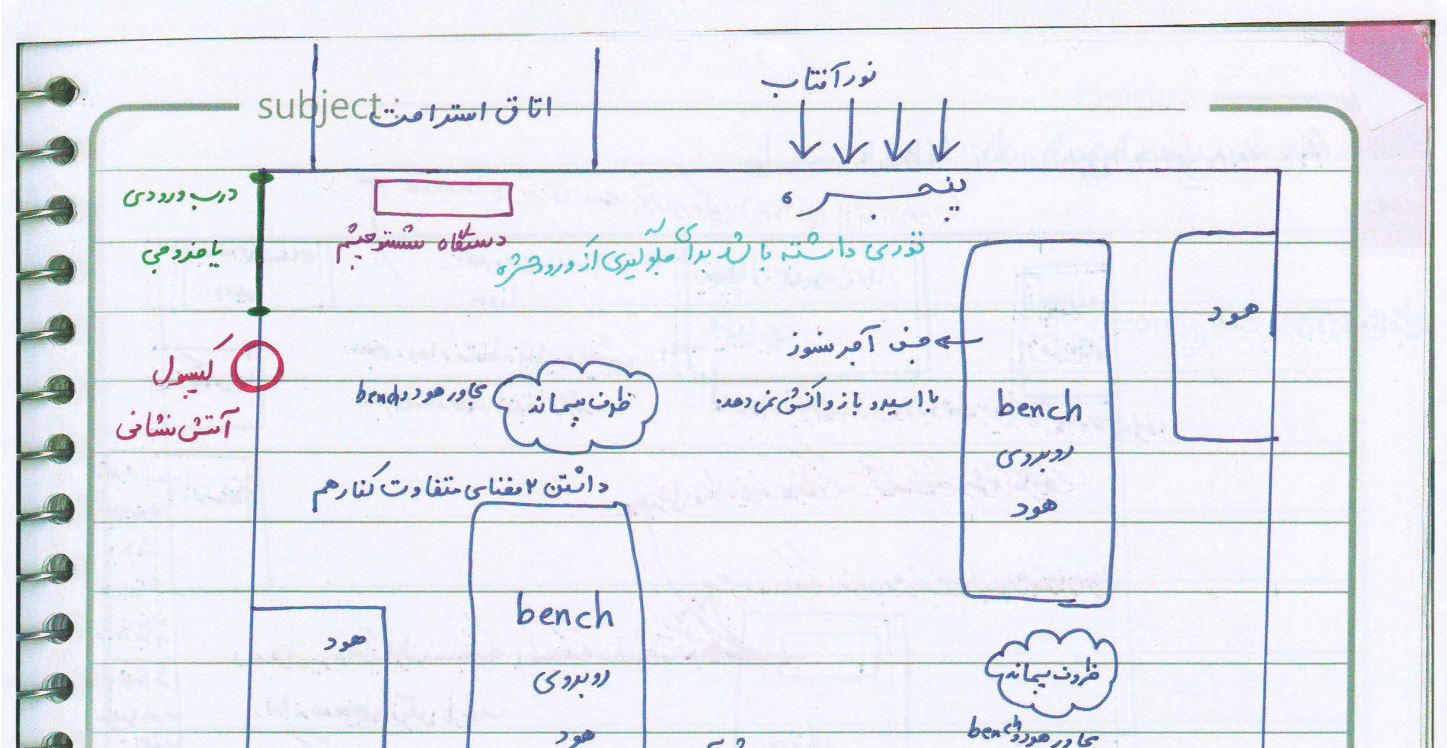 subject
اتاق استراحت
نور آفتاب
پنجره
درب ورودی
یا خروجی
دستگاه شستشو چشم
توری داشته باشد برای جلوگیری از ورود حشره
هود
کپسول
آتش نشانی
ظرف پسماند
مجاور هود و bench
جنس آجر نسوز
با اسید و باز واکنش نمی دهد
bench
روبروی
هود
داشتن ۲ فضای متفاوت کنار هم
bench
روبروی
هود
هود
ظروف پسماند
مجاور هود و bench